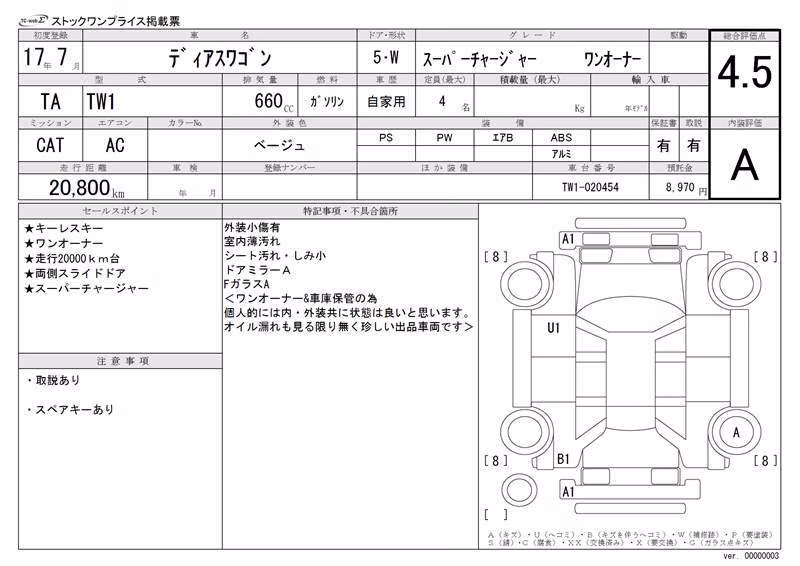 TC-webΣ ストックワンプライス掲載票
初度登録 車名 ドア・形状 グレード 駆動 総合評価点
17年 7月 ディアスワゴン 5・W スーパーチャージャー ワンオーナー 4.5
型式 排気量 燃料 車歴 定員(最大) 積載量(最大) 輸入車
TA TW1 660CC ガソリン 自家用 4名 Kg 年モデル
ミッション エアコン カラーNo. 外装色 装備 保証書 取説 内装評価
CAT AC ベージュ PS PW エアB ABS 有 有 A
アルミ
走行距離 車検 登録ナンバー ほか装備 車台番号 預託金
20,800km 年 月 TW1-020454 8,970円
セールスポイント
★キーレスキー
★ワンオーナー
★走行20000km台
★両側スライドドア
★スーパーチャージャー
注意事項
・取説あり
・スペアキーあり
特記事項・不具合箇所
外装小傷有
室内薄汚れ
シート汚れ・しみ小
ドアミラーA
FガラスA
<ワンオーナー&車庫保管の為
個人的には内・外装共に状態は良いと思います。
オイル漏れも見る限り無く珍しい出品車両です>
A1
[8] [8]
U1
A
B1
[8] [8]
A1
[ ]
A(キズ)・U(ヘコミ)・B(キズを伴うヘコミ)・W(補修跡)・P(要塗装)
S(錆)・C(腐食)・XX(交換済み)・X(要交換)・G(ガラス点キズ)
ver. 00000003